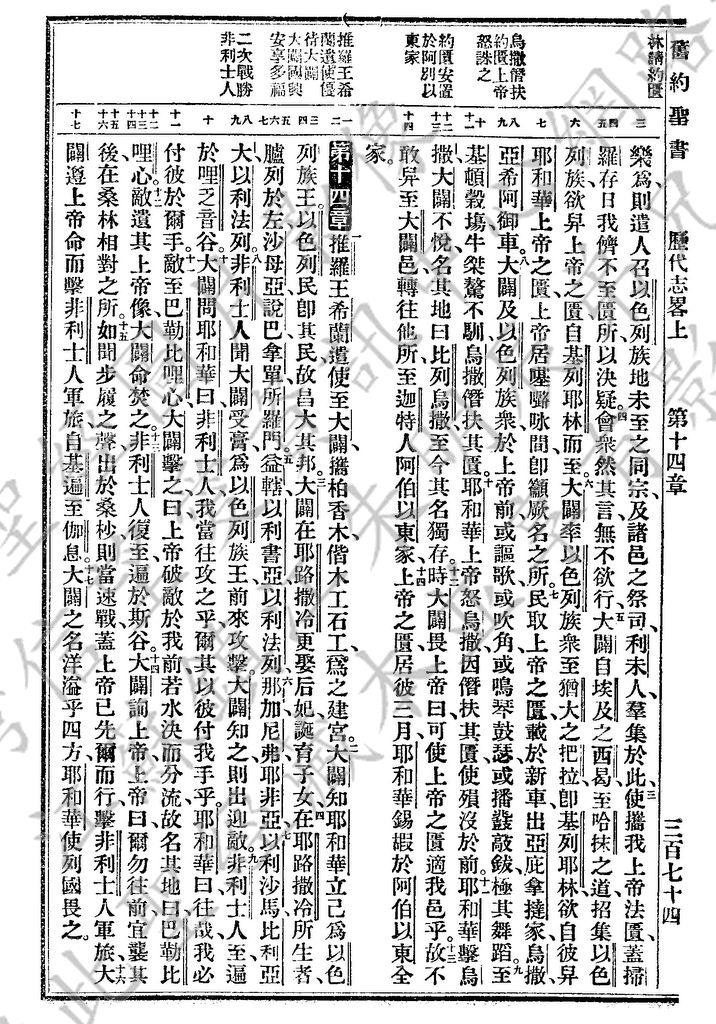 舊約聖書 歷代志畧上 第十四章 三百七十四
林請約匱
烏撒僭扶
約匱上帝
怒誅之
約匱安置
於阿別以
東家
推羅王希
蘭遣使優
待大闢
大闢國興
安享多福
二次戰勝
非利士人
三
四五
六
七
八九
十
十一
十二
十三
十四
一二
三四
五六七
八九
十
十一
十二
十三十四
十五
十六
十七
樂爲則遣人召以色列族地未至之同宗及諸邑之祭司利未人羣集於此三使攜我上帝法匱蓋掃
羅存日我儕不至匱所以決疑四會衆然其言無不欲行五大闢自埃及之西曷至哈抹之道招集以色
列族欲舁上帝之匱自基列耶林而至六大闢率以色列族衆至猶大之把拉卽基列耶林欲自彼舁
耶和華上帝之匱上帝居𠼻㘔𠱀間卽籲厥名之所七民取上帝之匱載於新車出亞庇拿撻家烏撒
亞希阿御車八大闢及以色列族衆於上帝前或謳歌或吹角或鳴琴鼓瑟或播鼗敲鈸極其舞蹈九至
基頓穀塲牛桀驁不馴烏撒僭扶其匱十耶和華上帝怒烏撒因僭扶其匱使殞沒於前十一耶和華擊烏
撒大闢不悅名其地曰比列烏撒至今其名獨存十二時大闢畏上帝曰可使上帝之匱適我邑乎十三故不
敢舁至大闢邑轉往他所至迦特人阿伯以東家十四上帝之匱居彼三月耶和華錫嘏於阿伯以東全
家
第十四章 一推羅王希蘭遣使至大闢攜柏香木偕木工石工爲之建宮二大闢知耶和華立己爲以色
列族王以色列民卽其民故昌大其邦三大闢在耶路撒冷更娶后妃誕育子女四在耶路撒冷所生者
臚列於左沙母亞說巴拿單所羅門五益轄以利書亞以利法列六那加尼弗耶非亞七以利沙馬比利亞
大以利法列八非利士人聞大闢受膏爲以色列族王前來攻擊大闢知之則出迎敵九非利士人至遍
於哩乏音谷十大闢問耶和華曰非利士人我當往攻之乎爾其以彼付我手乎耶和華曰往哉我必
付彼於爾手十一敵至巴勒比哩心大闢擊之曰上帝破敵於我前若水決而分流故名其地曰巴勒比
哩心十二敵遺其上帝像大闢命焚之十三非利士人復至遍於斯谷十四大闢詢上帝上帝曰爾勿往前宜襲其
後在桑林相對之所十五如聞步履之聲出於桑杪則當速戰蓋上帝已先爾而行擊非利士人軍旅十六大
闢遵上帝命而擊非利士人軍旅自基遍至伽息十七大闢之名洋溢乎四方耶和華使列國畏之